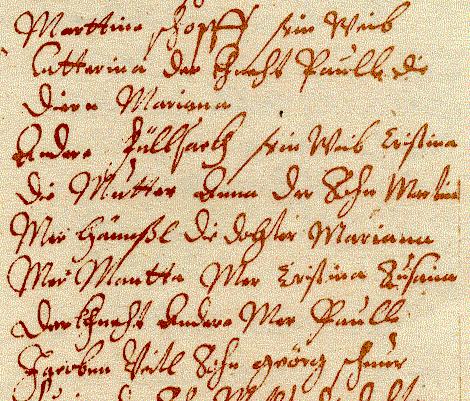 Marttino schöpff sein Weib
Catterina der Knecht Paull die
Diern Mariana
Andere Züllsack sein Weib Cristina
die Mutter Anna der Sohn Martin
Mer Hännssl die dohter Mariana
Mer Mautta Mer Cristina Susana
Der Knecht Andere Mer Paull
Jacoben Veitl Sohn geörg